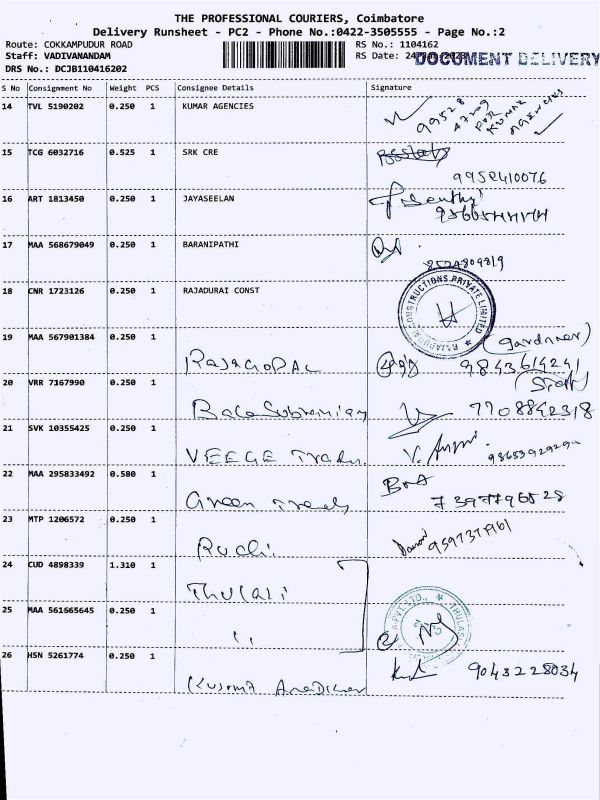 THE PROFESSIONAL COURIERS, Coimbatore
Delivery Runsheet - PC2 - Phone No.:0422-3505555 - Page No.:2
Route: COKKAMPUDUR ROAD
RS No.: 1104162
Staff: VADIVANANDAM
RS Date: 24
DOCUMENT DELIVERY
DRS No.: DCJB110416202
S No Consignment No Weight PCS Consignee Details Signature
14 TVL 5190202 0.250 1 KUMAR AGENCIES
99528
FOR
KUMAR
AGENCIES
15 TCG 6032716 0.525 1 SRK CRE
9952410076
16 ART 1813450 0.250 1 JAYASEELAN
17 MAA 568679049 0.250 1 BARANIPATHI
8524809819
18 CNR 1723126 0.250 1 RAJADURAI CONST
CONSTRUCTIONS PRIVATE LIMITED
19 MAA 567901384 0.250 1 RAJAGOPAL
(gardner)
9843614241
20 VRR 7167990 0.250 1 Balasubramian
(Staff)
7708842318
21 SVK 10355425 0.250 1 VEEGE Traders
9865392929
22 MAA 295833492 0.580 1 Green Trends
7397796528
23 MTP 1206572 0.250 1 Ruchi
24 CUD 4898339 1.310 1 Thulasi
25 MAA 561665645 0.250 1 "
26 HSN 5261774 0.250 1 Kusuma
9043228034